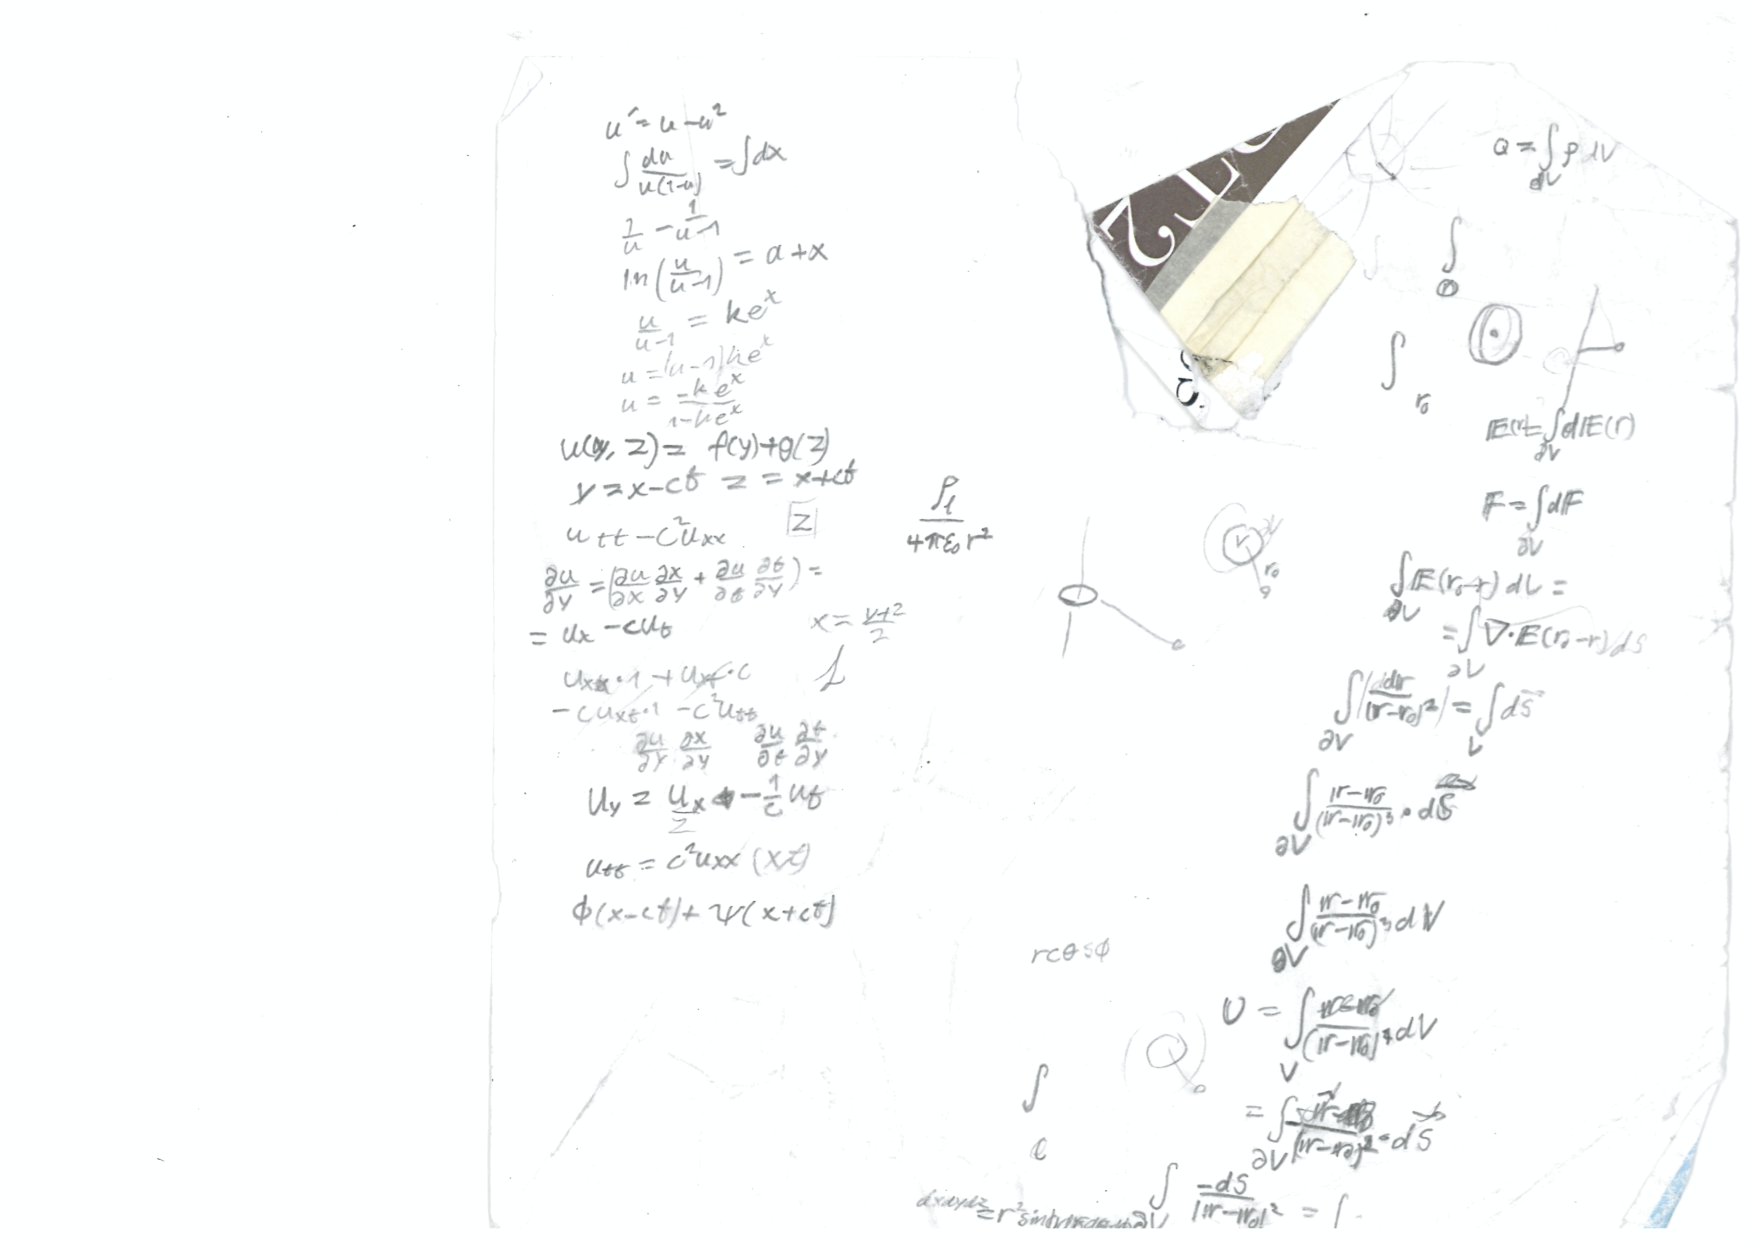 u′ = u − u²
∫ du/(u(1−u)) = ∫dx
1/u − 1/(u−1)
ln(u/(u−1)) = a + x
u/(u−1) = ke^x
u = (u−1)ke^x
u = −ke^x/(1−ke^x)
u(y, z) = f(y)+g(z)
y = x−ct z = x+ct
z
u_tt − c²u_xx
∂u/∂y = (∂u/∂x ∂x/∂y + ∂u/∂t ∂t/∂y) =
= u_x − cu_t
x = (y+z)/2
u_xx·1 + u_xt·c
−cu_xt·1 − c²u_tt
∂u/∂y ∂x/∂y ∂u/∂t ∂t/∂y
u_y = u_x/2 − 1/c u_t
u_tt = c²u_xx (x,t)
ϕ(x−ct) + ψ(x+ct)
ρ_l/(4πε₀r²)
r
∂V
r₀
rcosϕ
∫
Q = ∫_∂V ρ dV
∫
∫
r₀
E(r) = ∫_∂V dE(r)
F = ∫_∂V dF
∫_∂V E(r₀−r) dV =
= ∫_∂V ∇·E(r₀−r) dS
∫_∂V (ddr/|r−r₀|²) = ∫_V dS
∫_∂V (r−r₀)/(r−r₀)³ · dS
∫_∂V (r−r₀)/(r−r₀)³ dV
U = ∫_V /(r−r₀)⁴ dV
= ∫_∂V /(r−r₀)² · dS
dxdydz = r² sin
∫_∂V −dS/|r−r₀|² = ∫